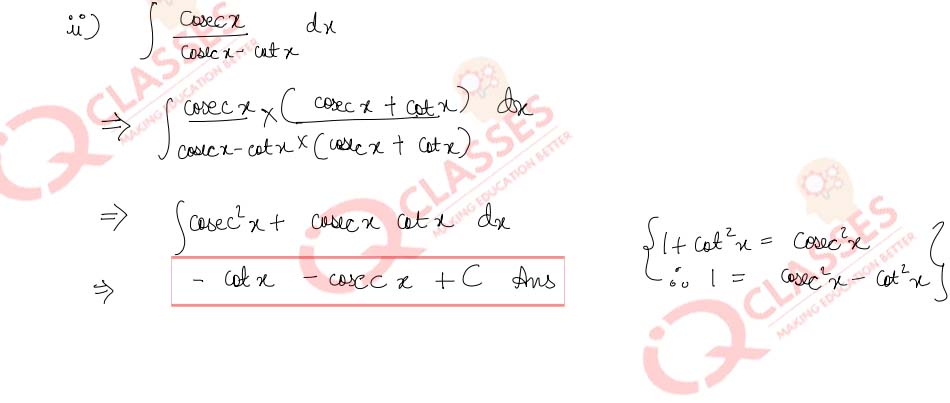 ii) ∫ cosec x / cosec x - cot x dx
⇒ ∫ cosec x × (cosec x + cot x) / cosec x - cot x × (cosec x + cot x) dx
⇒ ∫ cosec²x + cosec x cot x dx
{ 1 + cot²x = cosec²x
∴ 1 = cosec²x - cot²x }
⇒ - cot x - cosec x + C Ans
IQ CLASSES
MAKING EDUCATION BETTER
IQ CLASSES
MAKING EDUCATION BETTER
IQ CLASSES
MAKING EDUCATION BETTER